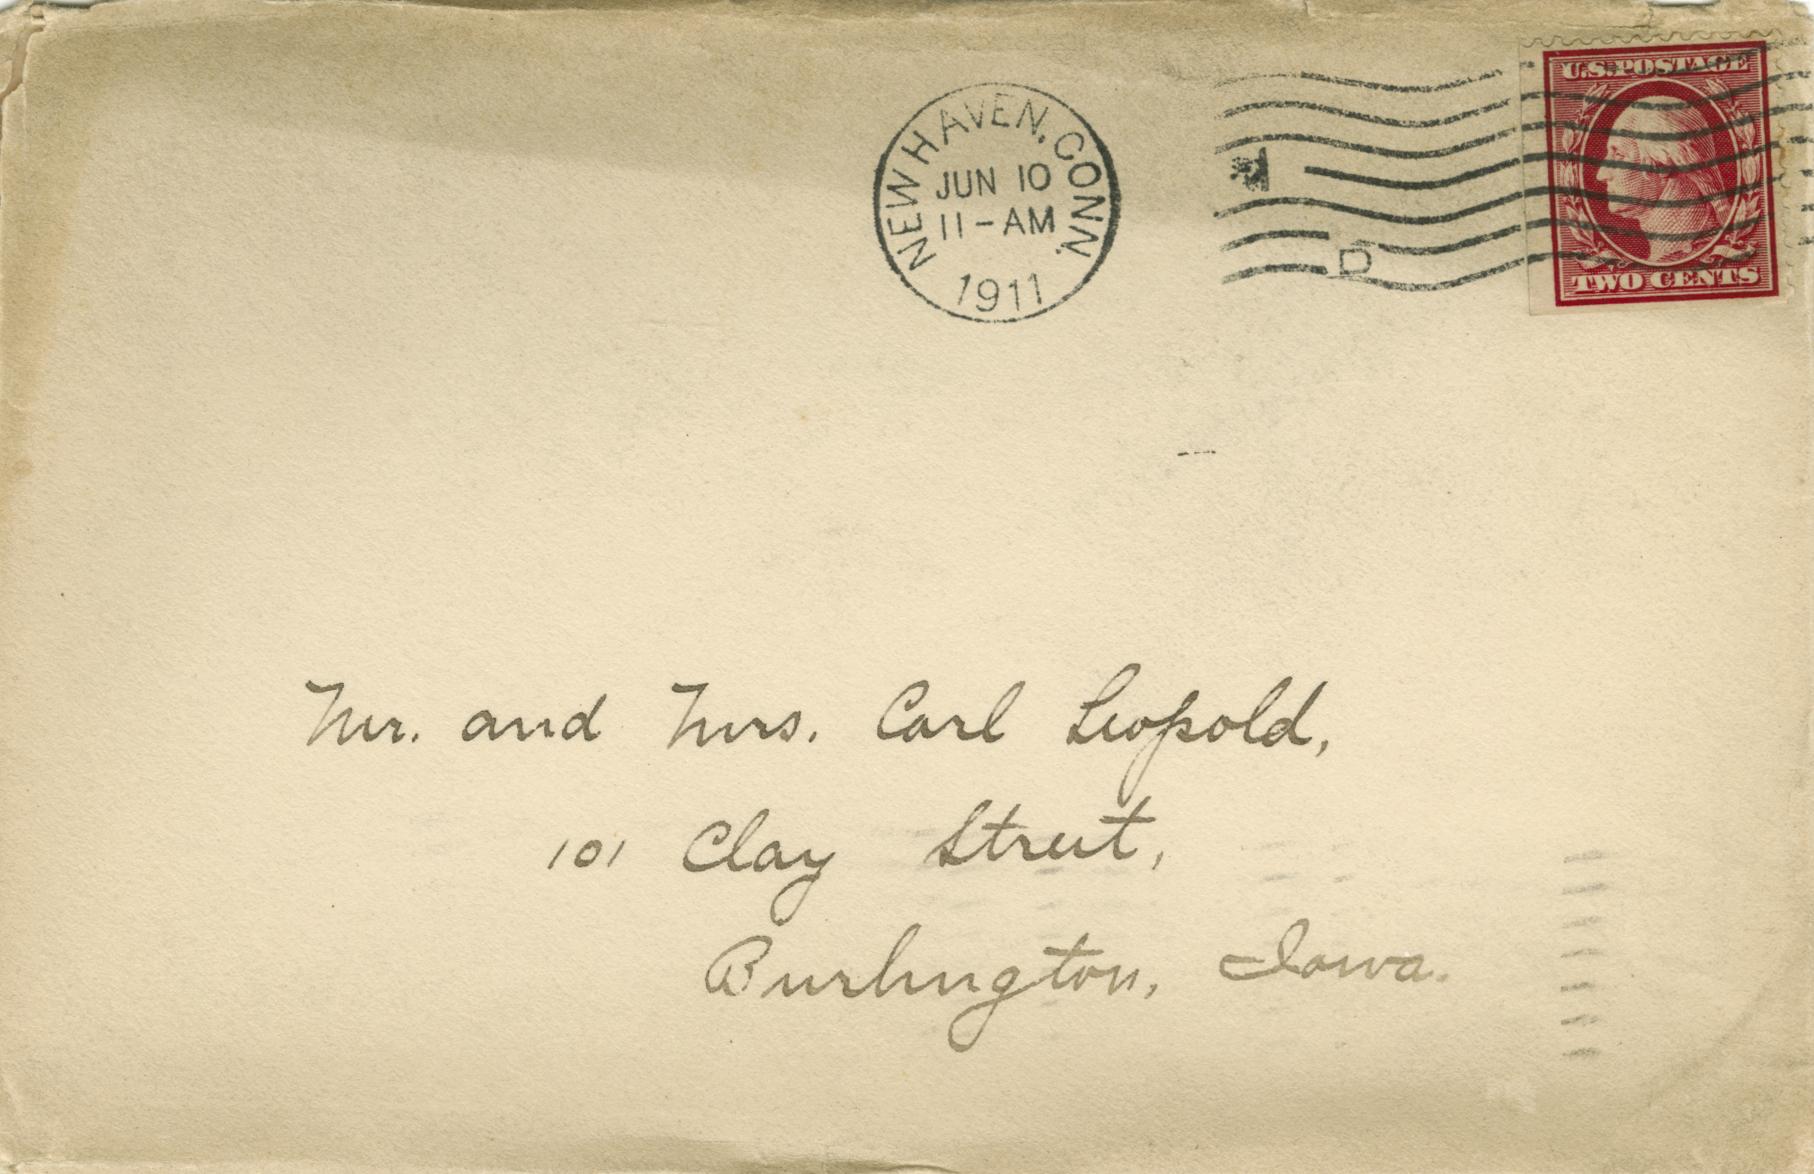 NEW HAVEN, CONN.
JUN 10
11-AM
1911
D
U.S. POSTAGE
TWO CENTS
Mr. and Mrs. Carl Leopold,
101 Clay Street,
Burlington, Iowa.